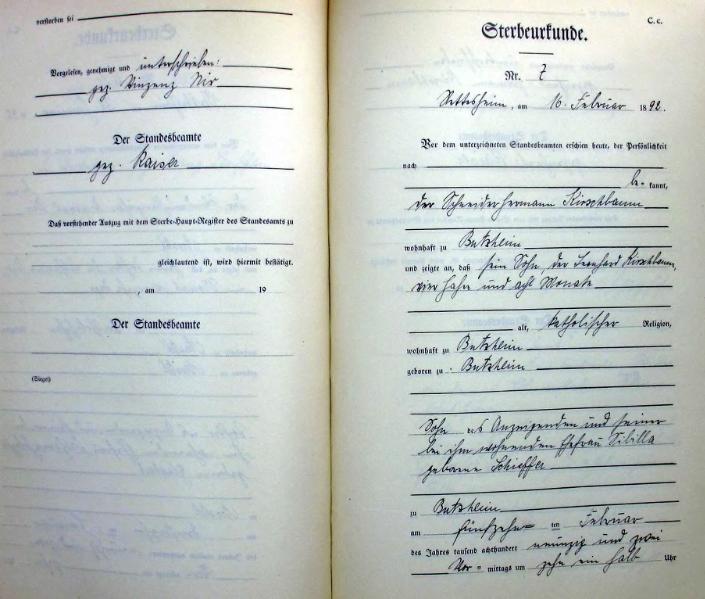 verstorben sei
Vorgelesen, genehmigt und unterschrieben:
gez. Vinzenz Nix
Der Standesbeamte
gez. Kaiser
Daß vorstehender Auszug mit dem Sterbe-Haupt-Register des Standesamts zu
gleichlautend ist, wird hiermit bestätigt.
, am 19
Der Standesbeamte
(Siegel)
C. c.
Sterbeurkunde.
Nr. 7
Nettesheim, am 16. Februar 1892.
Vor dem unterzeichneten Standesbeamten erschien heute, der Persönlichkeit
nach
be= kannt,
der Schneider Hermann Kirschbaum
wohnhaft zu Butzheim
und zeigte an, daß sein Sohn, der Leonhard Kirschbaum,
vier Jahre und acht Monate
alt, katholischer Religion,
wohnhaft zu Butzheim
geboren zu Butzheim
Sohn des Anzeigenden und seiner
bei ihm wohnenden Ehefrau Sibilla
geborene Schieffer
zu Butzheim
am fünfzehn= ten Februar
des Jahres tausend achthundert neunzig und zwei
Vor= mittags um zehn ein halb Uhr